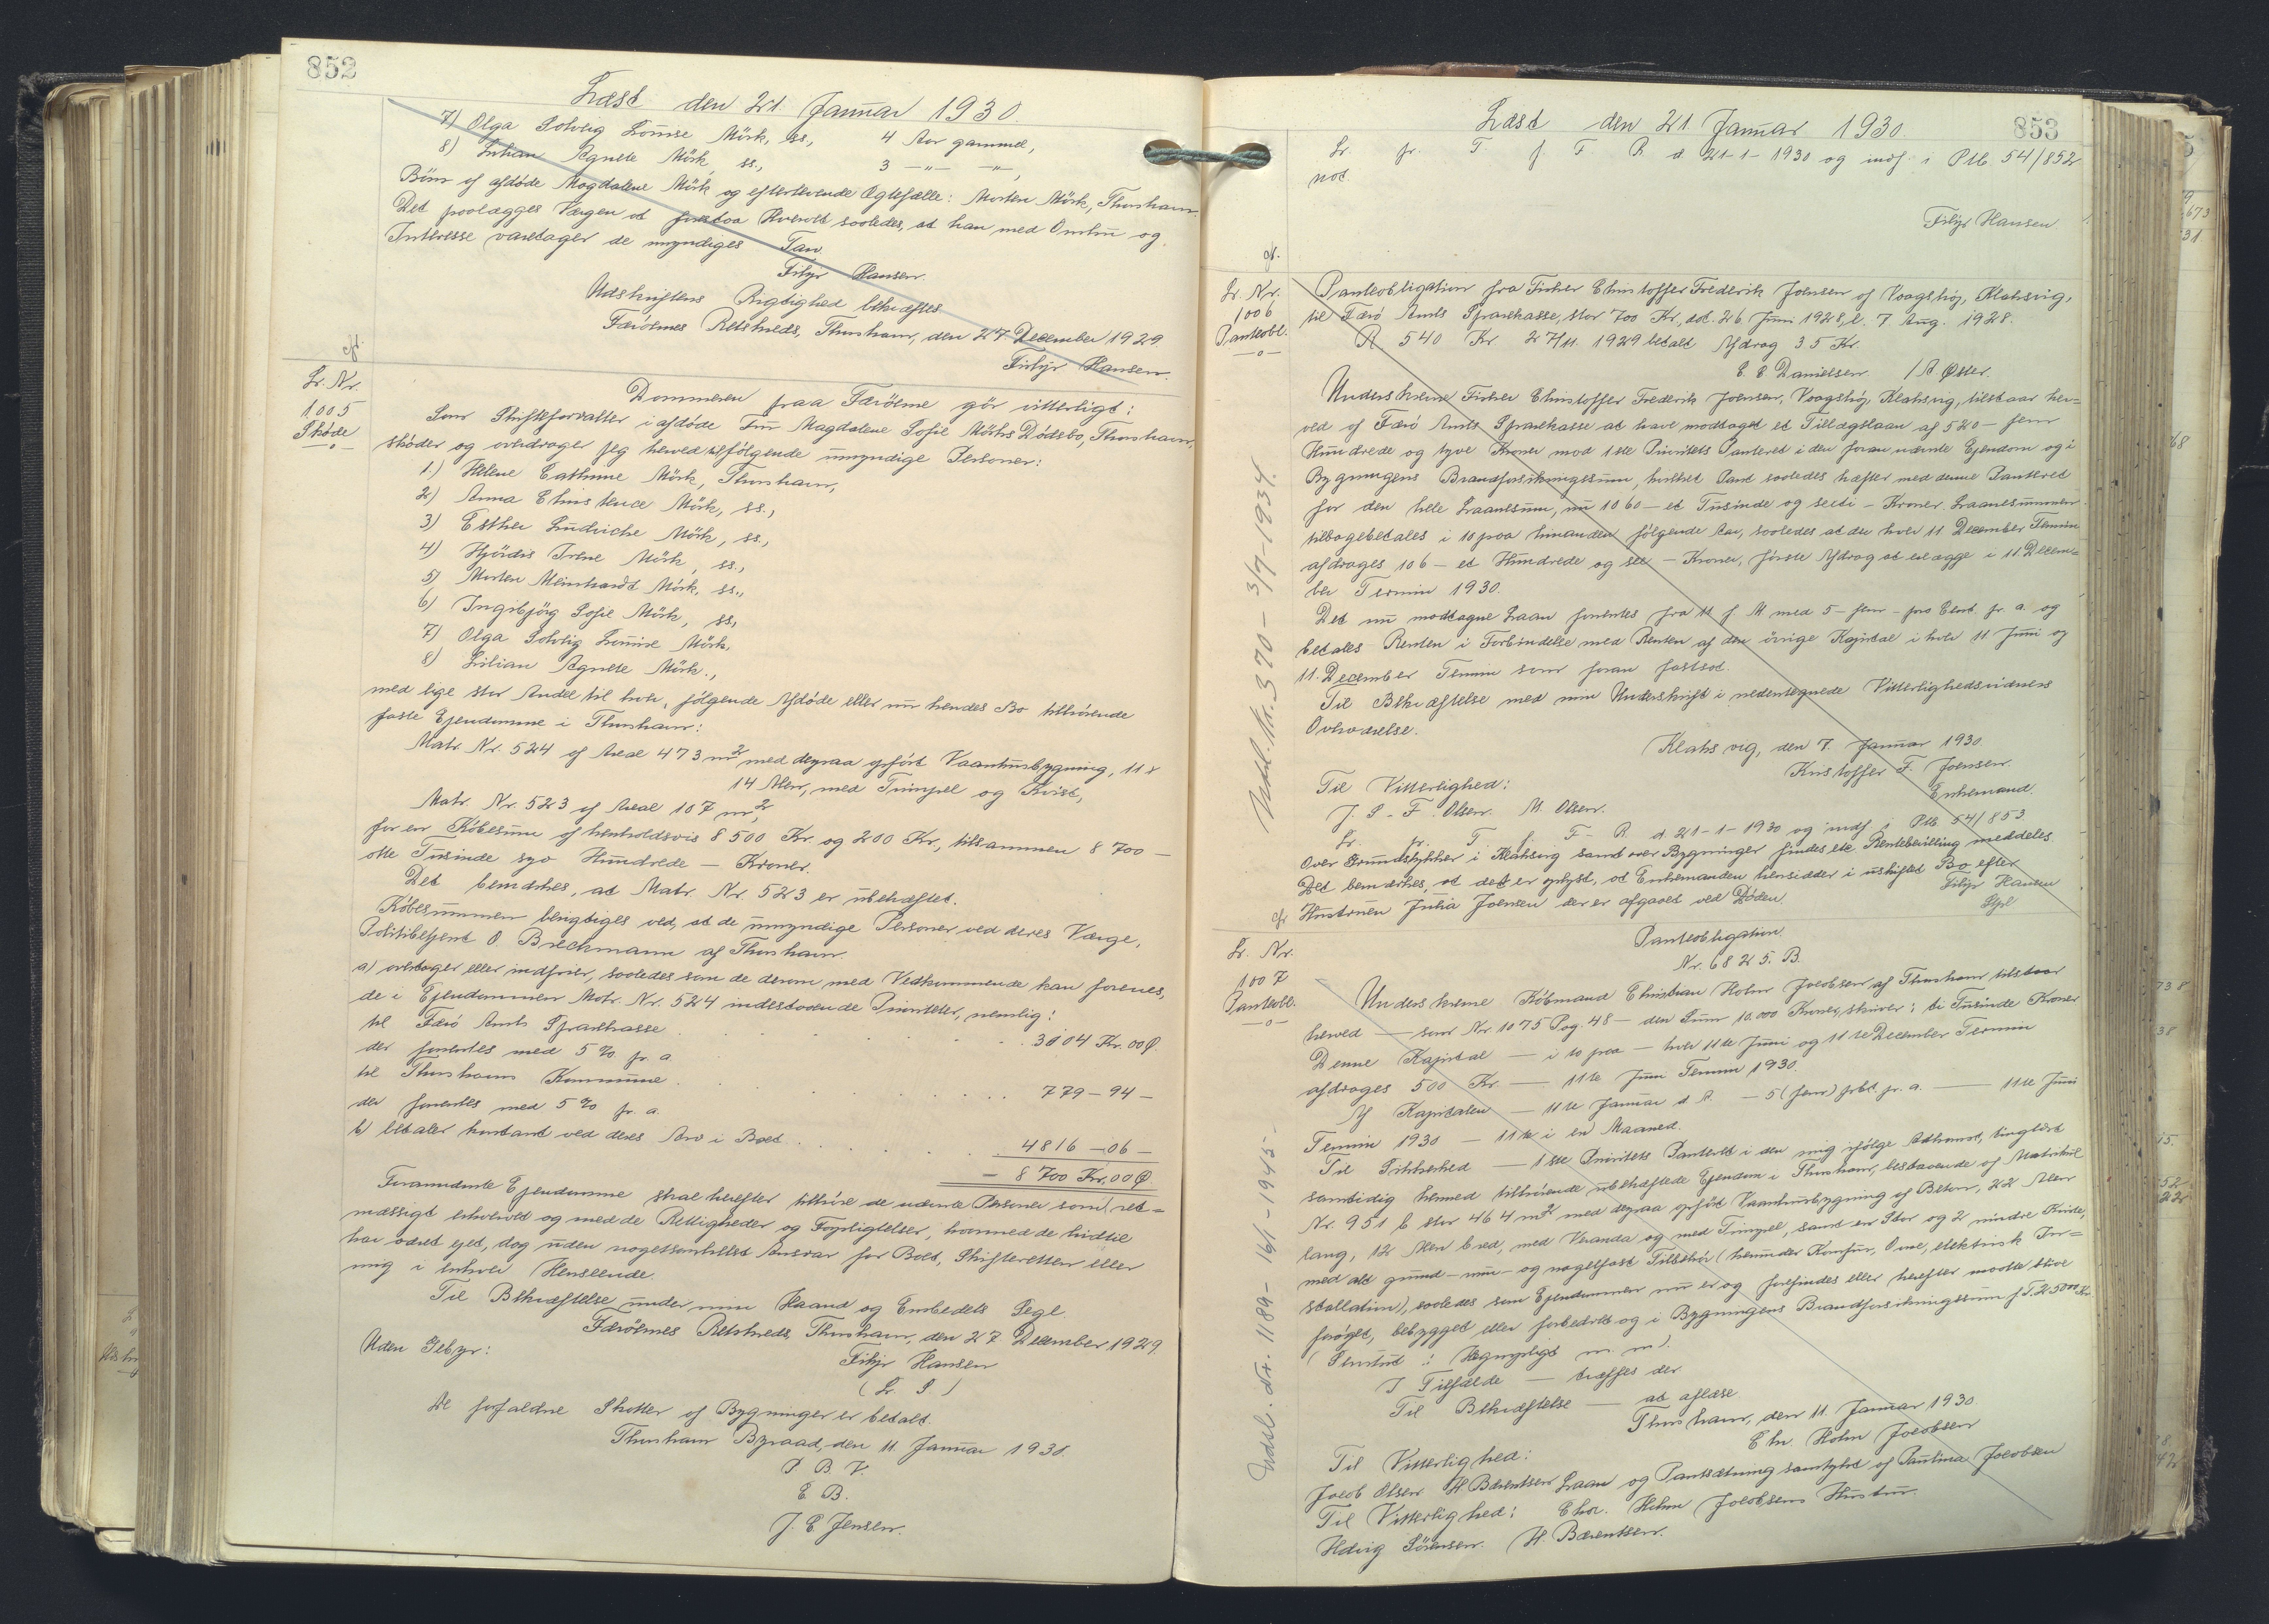 852
Læst den 21. Januar 1930.
7) Olga Solveig Lovise Mörk, ss., 4 Aar gammel,
8) Lilian Agnete Mörk, ss., 3 -"- -"-,
Börn af afdöde Magdalene Mörk og efterlevende Ægtefælle: Morten Mörk, Thorshavn.
Det paalægges Værgen at forestaa Hvervet saaledes, at han med Omhu og
Interesse varetager de umyndiges Tarv.
Filip Hansen.
Udskriftens Rigtighed bekræftes.
Færöernes Retskreds, Thorshavn, den 27. December 1929.
Filip Hansen.
Lr. Nr.
1005
Sköde
-o-
Dommeren paa Færöerne gör vitterligt:
Som Skifteforvalter i afdöde Fru Magdalene Sofie Mörks Dödsbo, Thorshavn,
sköder og overdrager jeg herved til fölgende umyndige Personer:
1.) Helene Cathrine Mörk, Thorshavn,
2) Anna Christence Mörk, ss.,
3) Esther Ludvicke Mörk, ss.,
4) Hjördis Irene Mörk, ss.,
5) Morten Meinhardt Mörk, ss.,
6) Ingibjörg Sofie Mörk, ss,
7) Olga Solveig Lovise Mörk,
8) Lilian Agnete Mörk.,
med lige stor Andel til hver, fölgende Afdöde eller nu hendes Bo tilhörende
faste Ejendomme i Thorshavn:
Matr. Nr. 524 af Areal 473 m² med derpaa opfört Vaaningsbygning, 11 x
14 Alen, med Timpel og Kvist,
Matr. Nr. 523 af Areal 107 m²,
for en Köbesum af henholdsvis 8500 Kr. og 200 Kr., tilsammen 8700 -
otte Tusinde syv Hundrede - Kroner.
Det bemærkes, at Matr. Nr. 523 er ubehæftet.
Köbesummen berigtiges ved, at de umyndige Personer ved deres Værge,
Politibetjent O. Breckmann af Thorshavn
a) overtager eller indfrier, saaledes som de derom med Vedkommende kan forenes,
de i Ejendommen Matr. Nr. 524 indestaaende Prioriteter, nemlig:
til Færö Amts Sparekasse . . . 3104 Kr. 00 Ø.
der forrentes med 5 % pr. a.
til Thorshavns Kommune . . . 779 - 94 -
der forrentes med 5 % pr. a.
b) betaler kontant ved deres Arv i Boet . . . 4816 - 06 -
- 8700 Kr. 00 Ø
Forannævnte Ejendomme skal herefter tilhöre de nævnte Personer som ret=
mæssigt erhvervet og med de Rettigheder og Forpligtelser, hvormed de hidtil
har været ejet, dog uden nogetsomhelst Ansvar for Boet, Skifteretten eller
mig i enhver Henseende.
Til Bekræftelse under min Haand og Embedets Segl.
Færöernes Retskreds, Thorshavn, den 27 December 1929.
Uden Gebyr:
Filip Hansen
( L. S. )
De forfaldne Skatter af Bygninger er betalt.
Thorshavn Byraad, den 11. Januar 1930.
P. B. V.
E. B.
J. C. Jensen.
853
Læst den 21. Januar 1930.
Lr. pr. T. f. F. R. d. 21-1-1930 og indf. i Ptb 54/852
not.
Filip Hansen
Lr. Nr.
1006
Panteobl.
-o-
Panteobligation fra Fisker Christoffer Frederik Joensen af Vaagshöj, Klaksvig,
til Færö Amts Sparekasse, stor 700 Kr., dat. 26. Juni 1928, l. 7. Aug. 1928.
R 540 Kr. 27/11. 1929 betalt Afdrag 35 Kr.
C. C. Danielsen. / A. Øster.
Underskrevne Fisker Christoffer Frederik Joensen, Vaagshöj, Klaksvig, tilstaar her=
ved af Færö Amts Sparekasse at have modtaget et Tillægslaan af 520 - fem
Hundrede og tyve Kroner mod 1ste Prioritets Panteret i den foran nævnte Ejendom og i
Bygningens Brandforsikringssum, hvilket Pant saaledes hæfter med denne Panteret
for den hele Laanesum, nu 1060 - et Tusinde og seeti - Kroner. Laanesummen
tilbagebetales i 10 paa hinanden fölgende Aar, saaledes at der hver 11 December Termin
afdrages 106 - et Hundrede og seks - Kroner, förste Afdrag at erlægge i 11 Decem=
ber Termin 1930.
Det nu modtagne Laan forrentes fra 11 f. M. med 5 - fem - pro Cent. pr. a. og
betales Renten i Forbindelse med Renten af den övrige Kapital i hver 11 Juni og
11. December Termin som foran fastsat.
Til Bekræftelse med min Underskrift i nedentegnede Vitterlighedsvidners
Overværelse.
Klaksvig, den 7. Januar 1930.
Kristoffer F. Joensen.
Enkemand.
Til Vitterlighed:
J. S. F. Olsen. M. Olsen.
Lr. pr. T. f. F. R. d. 21-1-1930 og indf. i Ptb. 54/853
Over Grundstykker i Klaksvig samt over Bygninger findes ikke Rentebevilling meddeles
Det bemærkes, at det er oplyst, at Enkemanden hensidder i uskiftet Bo efter
Hustruen Julia Joensen der er afgaaet ved Döden.
Filip Hansen
Lr. Nr.
1007
Panteobl.
-o-
Panteobligation.
Nr. 6825. B.
Underskrevne Köbmand Christian Holm Jacobsen af Thorshavn tilstaar
herved - som Nr. 1075 Pag. 48 - den Sum 10.000 Kroner, skriver: ti Tusinde Kroner
Denne Kapital - i to paa - hver 11te Juni og 11te December Termin
afdrages 500 Kr. - 11te Juni Termin 1930.
Af Kapitalen - 11te Januar d. A. - 5 (fem) pct. pr. a. - 11te Juni
Termin 1930 - 11te i en Maaned.
Til Sikkerhed - 1ste Prioritets Panteret i den mig ifölge Adkomst, tinglæst
samtidig hermed tilhörende ubehæftede Ejendom i Thorshavn, bestaaende af Matrikul
Nr. 951 b stor 464 m² med derpaa opfört Vaaningsbygning af Beton, 22 Alen
lang, 12 Alen bred, med Veranda og med Timpel, samt en Stor og 2 mindre Kviste,
med alt grund- mur- og nagelfast Tilbehör (herunder Komfur, Ovne, elektrisk In=
stallation), saaledes som Ejendommen nu er og forefindes eller herefter maatte blive
foröget, bebygget eller forbedret og i Bygningens Brandforsikringssum f. T. 25000 Kr.
I Tilfælde - træffes der
Til Bekræftelse - at aflæse
Thorshavn, den 11. Januar 1930.
Chr. Holm Jacobsen
Til Vitterlighed:
Jacob Olsen. H. Bærentsen. Laan og Pantsætning samtykt af Paulina Jacobsen
Til Vitterlighed: Chr. Holm Jacobsens Hustru.
Hedvig Sörensen. H. Bærentsen.
Udsl. Nr. 370 - 3/7-1934.
Udsl. Nr. 1189 - 16/1 - 1945 -